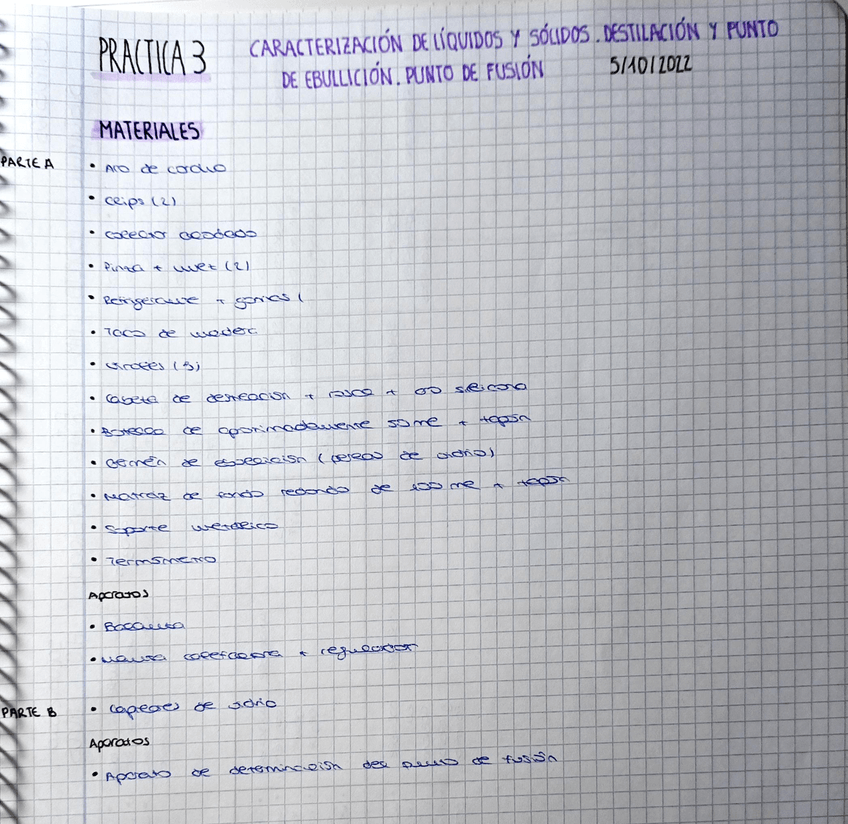 PRACTICA 3 CARACTERIZACIÓN DE LÍQUIDOS Y SÓLIDOS. DESTILACIÓN Y PUNTO
DE EBULLICIÓN. PUNTO DE FUSIÓN 5/10/2022
MATERIALES
PARTE A
• Aro de corcho
• Clips (2)
• Colector acodado
• Pinza + nuez (2)
• Refrigerante + gomas (
• Taco de madera
• Viales (3)
• Cabeza de destilación + rosca + aro silicona
• Botella de aproximadamente 50 ml + tapón
• Germén de ebullición (perlas de vidrio)
• Matraz de fondo redondo de 100 ml + tapón
• Soporte metálico
• Termómetro
Aparatos
• Balanza
• Manta calefactora + regulador
PARTE B
• Capilares de vidrio
Aparatos
• Aparato de determinación del punto de fusión